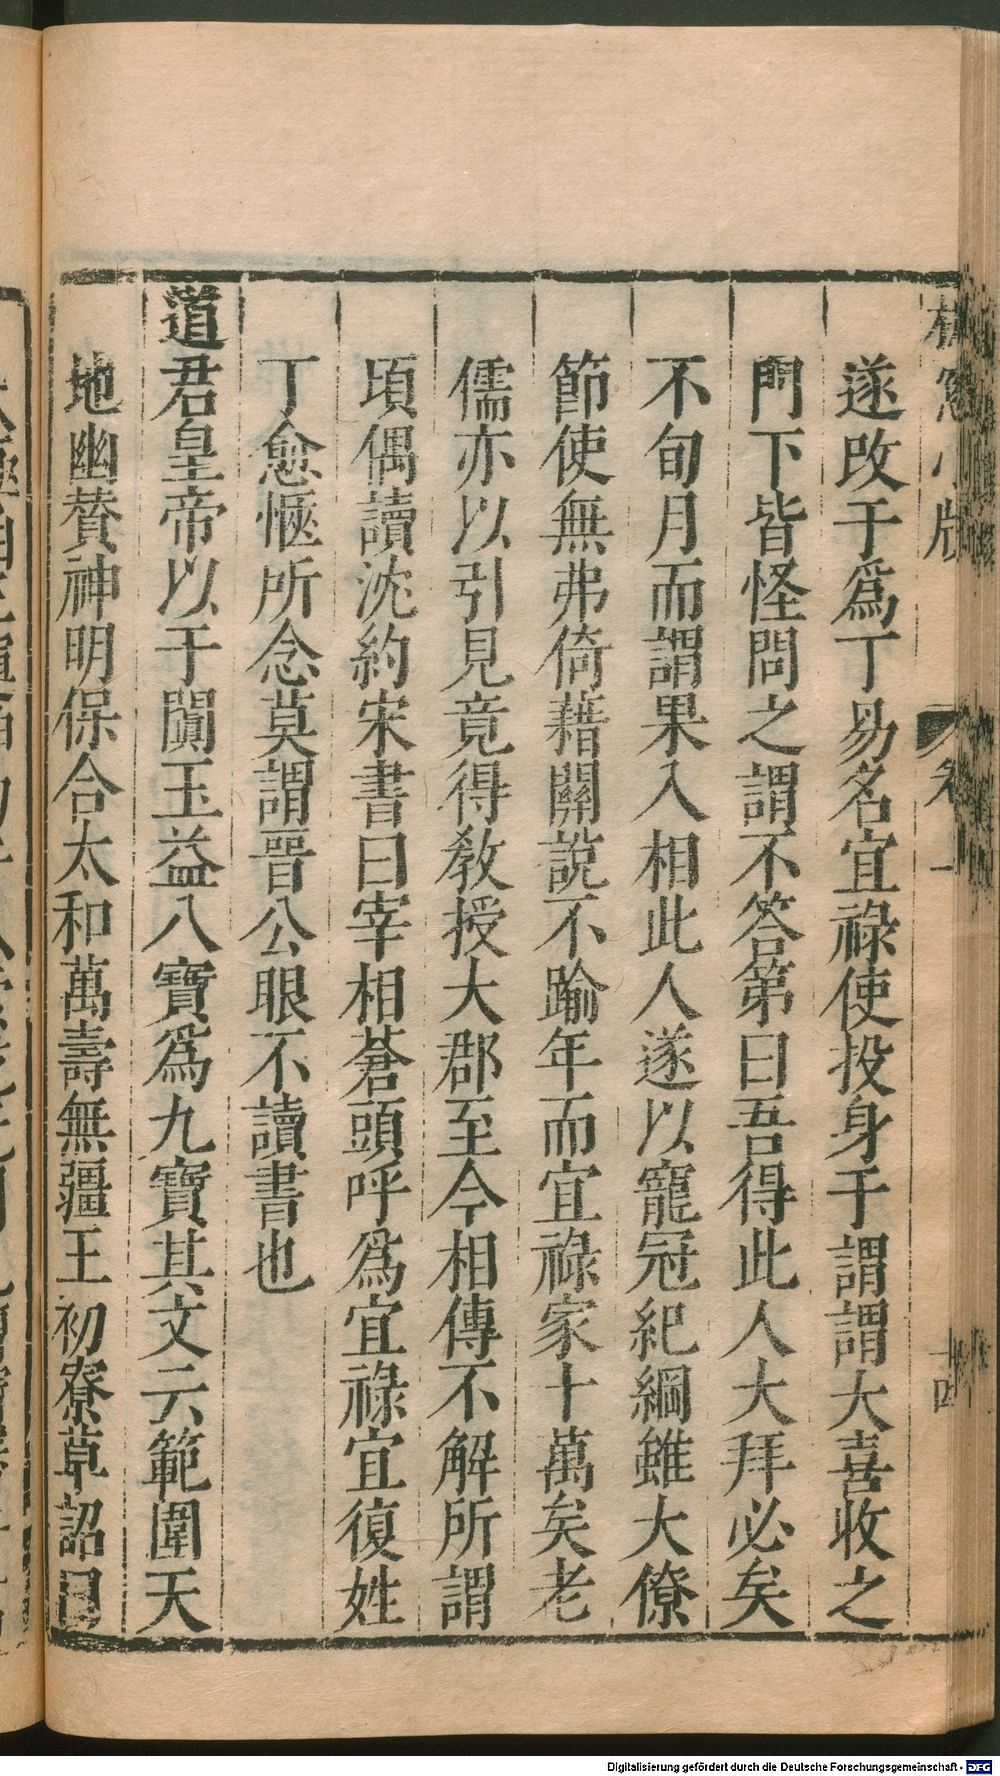 遂改于爲丁易名宜祿使投身于謂謂大喜收之
門下皆怪問之謂不答第曰吾得此人大拜必矣
不旬月而謂果入相此人遂以寵冠紀綱雖大僚
節使無弗倚藉關說不踰年而宜祿家十萬矣老
儒亦以引見竟得敎授大郡至今相傳不解所謂
頃偶讀沈約宋書曰宰相蒼頭呼爲宜祿宜復姓
丁愈愜所念莫謂晉公眼不讀書也
道君皇帝以于闐玉益八寶爲九寶其文云範圍天
地幽賛神明保合太和萬壽無疆王初寮草詔曰
Digitalisierung gefördert durch die Deutsche Forschungsgemeinschaft - DFG